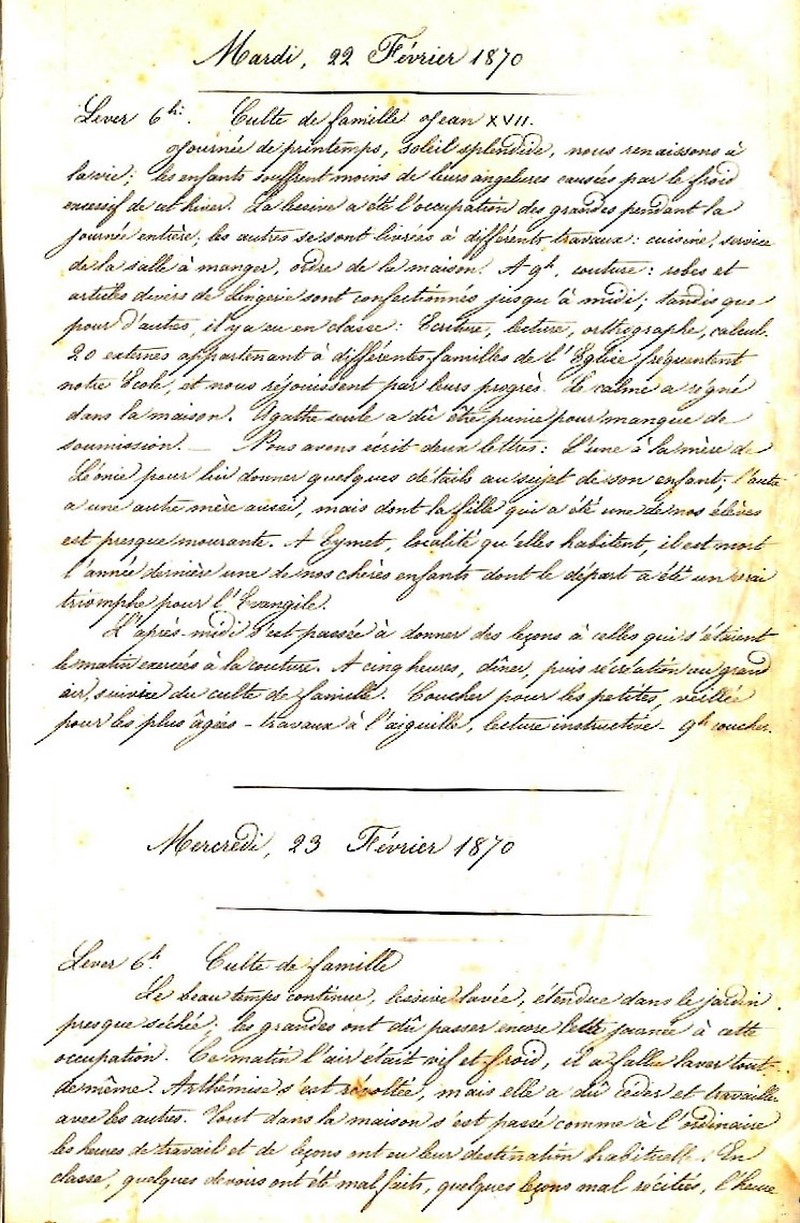 Mardi, 22 Février 1870
Lever 6h. Culte de famille Jean XVII.
Journée de printemps, soleil splendide, nous renaissons à
la vie; les enfants souffrent moins de leurs angelures causées par le froid
excessif de cet hiver. La lessive a été l'occupation des grandes pendant la
journée entière, les autres se sont livrées à différents travaux: cuisine, service
de la salle à manger, ordre de la maison. A 9h, couture: robes et
articles divers de lingerie sont confectionnés jusqu'à midi; tandis que
pour d'autres, il y a eu en classe: Ecriture, lecture, orthographe, calcul.
20 externes appartenant à différentes familles de l'Eglise fréquentent
notre Ecole, et nous réjouissent par leurs progrès. Le calme a régné
dans la maison. Agathe seule a dû être punie pour manque de
soumission. — Nous avons écrit deux lettres: L'une à la mère de
Léonie pour lui donner quelques détails au sujet de son enfant; l'autre
a une autre mère aussi, mais dont la fille qui a été une de nos élèves
est presque mourante. A Eymet, localité qu'elles habitent, il est mort
l'année dernière une de nos chères enfants dont le départ a été un vrai
triomphe pour l'Evangile.
L'après-midi s'est passée à donner des leçons à celles qui s'étaient
le matin exercées à la couture. A cinq heures, dîner, puis récréation au grand
air, suivie du culte de famille. Coucher pour les petites, veillée
pour les plus âgées - travaux à l'aiguille, lecture instructive - 9h coucher.
Mercredi, 23 Février 1870
Lever 6h. Culte de famille
Le beau temps continue, lessive lavée, étendue dans le jardin
presque séchée; les grandes ont dû passer encore cette journée à cette
occupation. Ce matin l'air était vif et froid, il a fallu laver tout-
de même. Arthémise s'est révoltée, mais elle a dû céder et travailler
avec les autres. Tout dans la maison s'est passé comme à l'ordinaire
les heures de travail et de leçons ont eu leur destination habituelle. En
classe, quelques devoirs ont été mal faits, quelques leçons mal récitées, l'heure